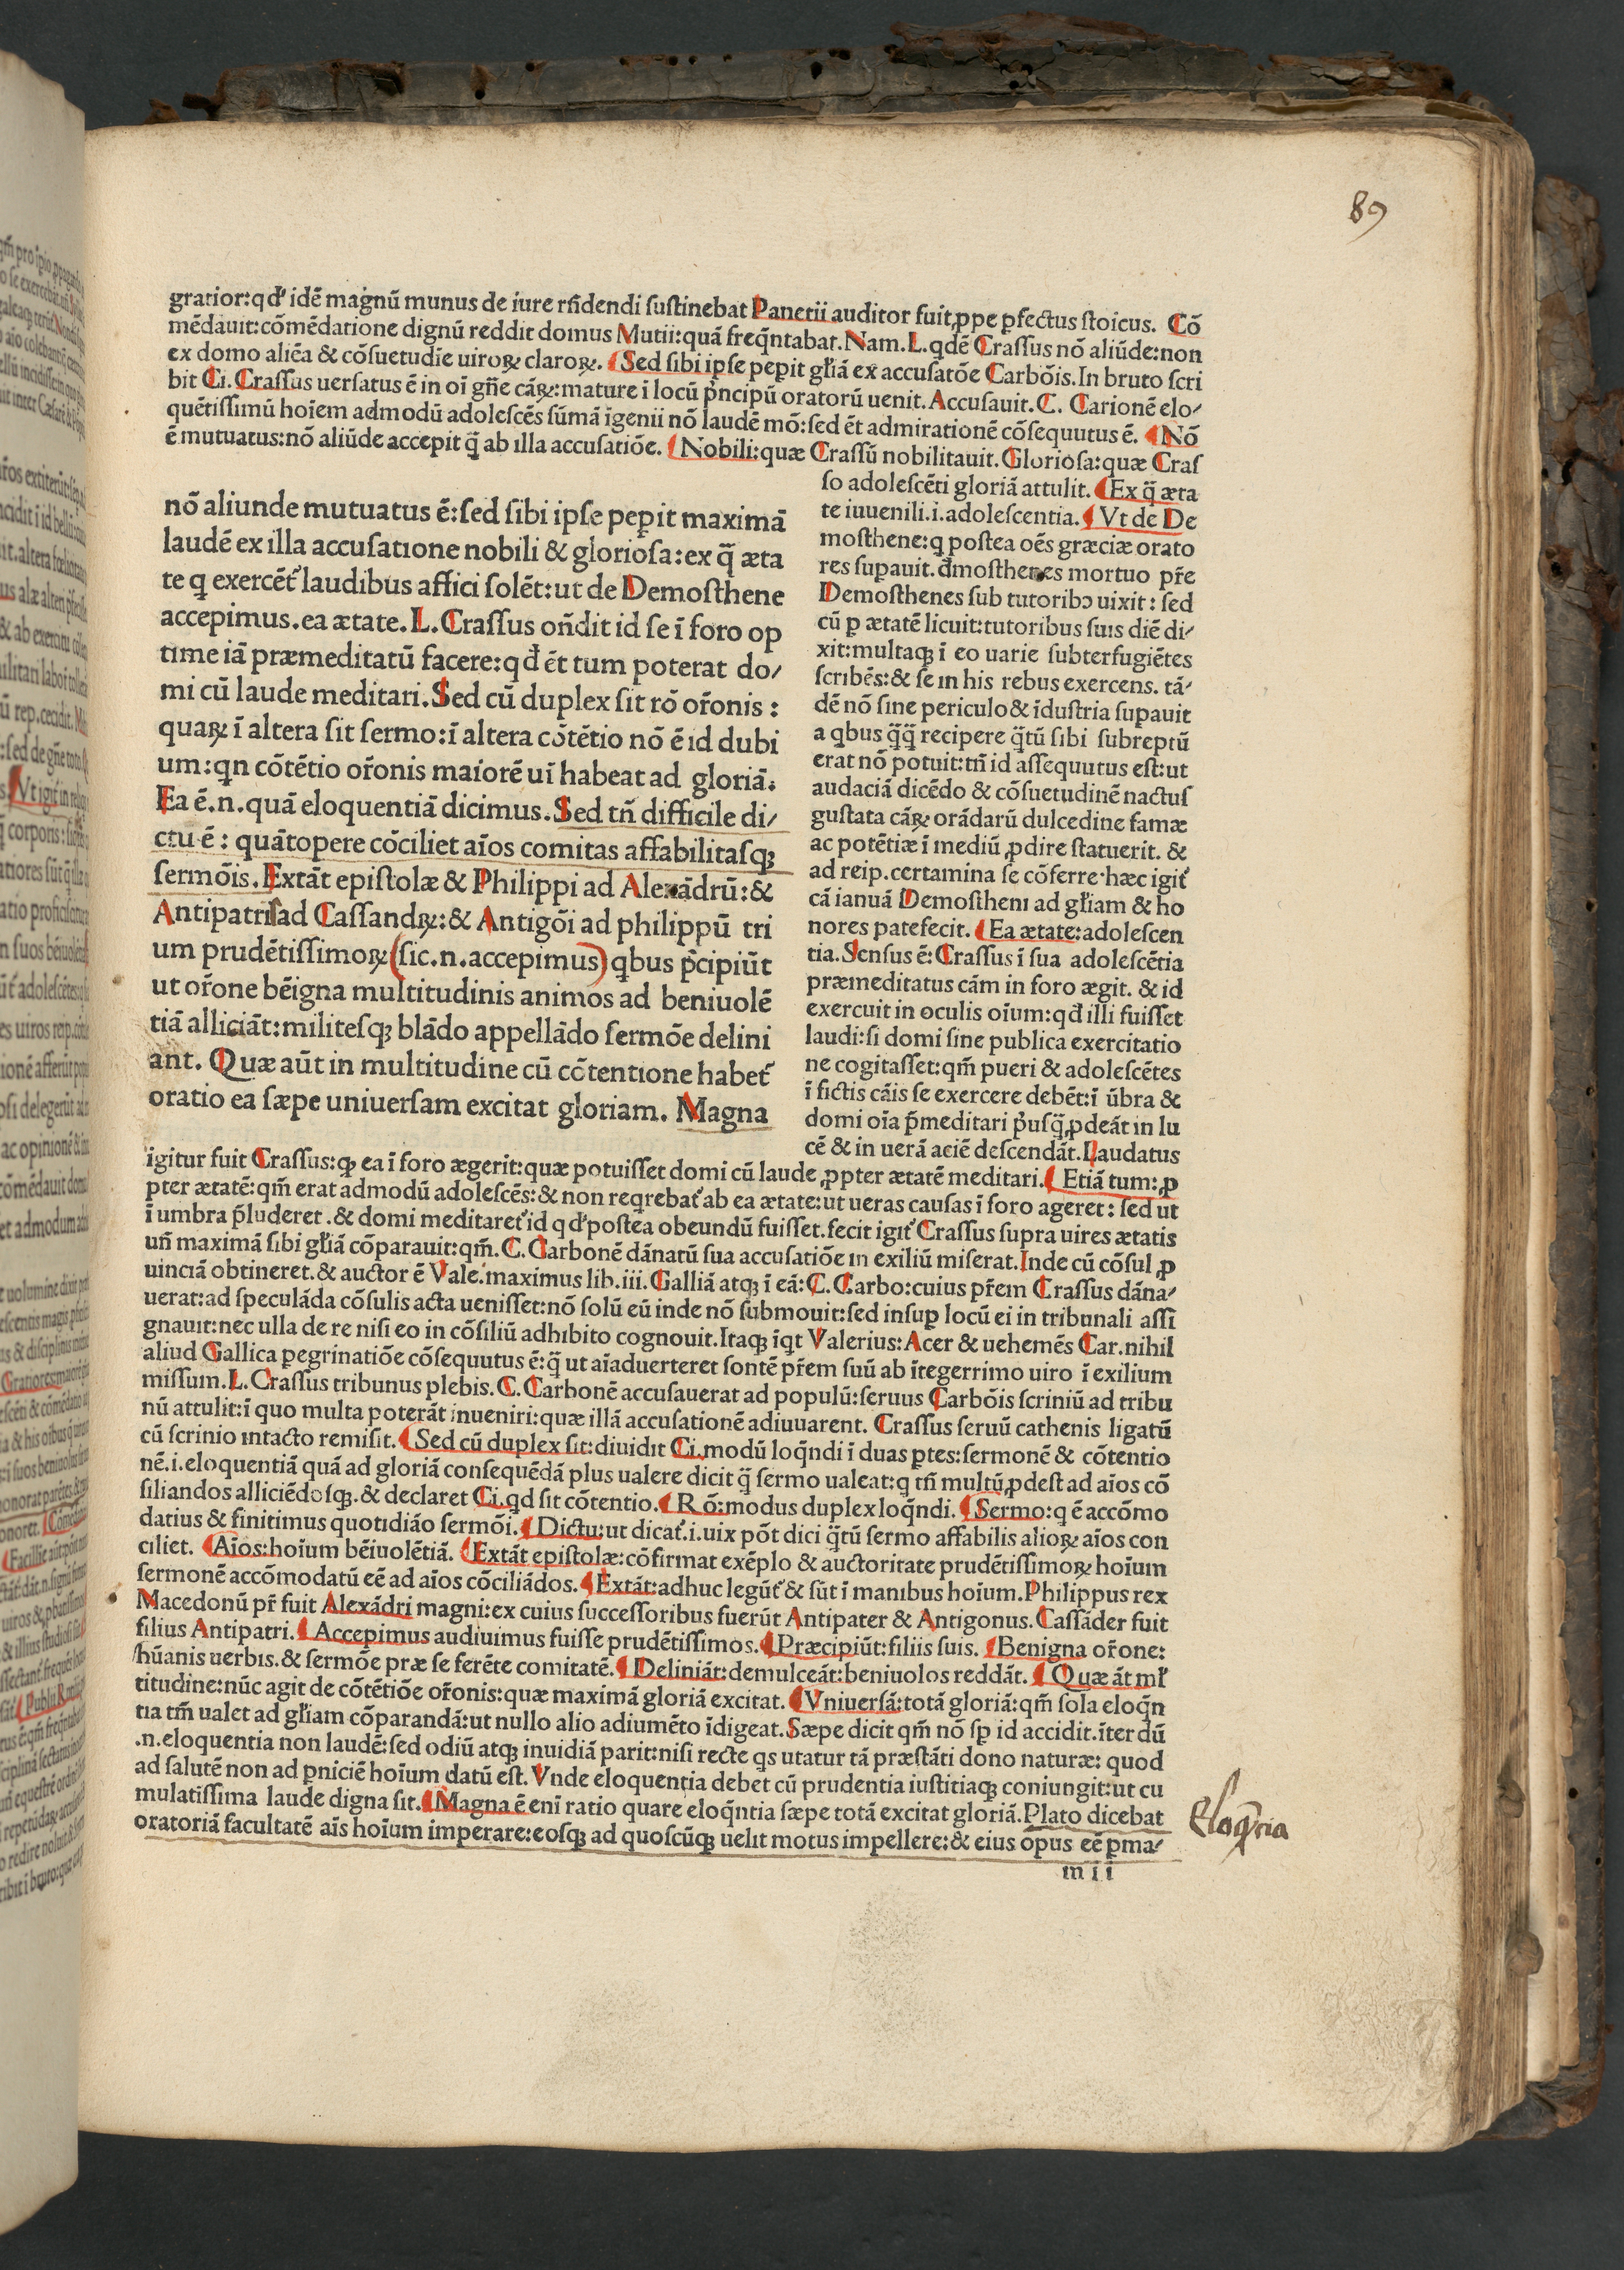 89
gratior:qd' idē magnū munus de iure rñdendi sustinebat Panetii auditor fuit,ppe pfectus stoicus. Cō
mēdauit:cōmēdatione dignū reddit domus Mutii:quā freq̄ntabat.Nam.L.qdē Crassus nō aliūde:non
ex domo aliēa & cōsuetudīe uiroꝝ claroꝝ. Sed sibi ipse pepit gl'iā ex accusatōe Carbōis.In bruto scri
bit Ci.Crassus uersatus ē in oī gñe cāꝝ:mature ī locū p'ncipū oratorū uenit.Accusauit.C. Carionē elo/
quētissimū hoīem admodū adolescēs sūmā īgenii nō laudē mō:sed ēt admirationē cōsequutus ē. Nō
ē mutuatus:nō aliūde accepit q̄ ab illa accusatiōe. Nobili:quæ Crassū nobilitauit.Gloriosa:quæ Cras
so adolescēti gloriā attulit. Ex q̄ æta
te iuuenili.i.adolescentia. Vt de De
mosthene:q postea oēs græciæ orato
res supauit.đmosthenes mortuo pr̄e
Demosthenes sub tutoribɔ uixit: sed
cū ꝑ ætatē licuit:tutoribus suis diē di/
xit:multaqꝫ ī eo uarie subterfugiētes
scribēs:& se in his rebus exercens. tā/
dē nō sine periculo & īdustria supauit
a qbus q̄q̄ recipere q̄tū sibi subreptū
erat nō potuit:tñ id assequutus est:ut
audaciā dicēdo & cōsuetudinē nactus
gustata cāꝝ orādarū dulcedine famæ
ac potētiæ ī mediū ꝓdire statuerit. &
ad reip.certamina se cōferre·hæc igit'
cā ianuā Demostheni ad gl'iam & ho
nores patefecit. Ea ætate:adolescen
tia.Sensus ē:Crassus ī sua adolescētia
præmeditatus cām in foro ægit. & id
exercuit in oculis oīum:qđ illi fuisset
laudi:si domi sine publica exercitatio
ne cogitasset:qm̄ pueri & adolescētes
ī fictis cāis se exercere debēt:ī ūbra &
domi oīa p̄meditari p'usq̄ ꝓdeāt in lu
cē & in uerā aciē descendāt.Laudatus
nō aliunde mutuatus ē:sed sibi ipse pepit maximā
laudē ex illa accusatione nobili & gloriosa:ex q̄ æta
te q exercēt' laudibus affici solēt:ut de Demosthene
accepimus.ea ætate.L.Crassus oñdit id se ī foro op
time iā præmeditatū facere:qđ ēt tum poterat do/
mi cū laude meditari.Sed cū duplex sit rō or̄onis :
quaꝝ ī altera sit sermo:ī altera cōtētio nō ē id dubi
um:qn cōtētio or̄onis maiorē uī habeat ad gloriā:
Ea ē.n.quā eloquentiā dicimus.Sed tñ difficile di/
ctu ē : quātopere cōciliet aīos comitas affabilitasqꝫ
sermōis.Extāt epistolæ & Philippi ad Alexādrū:&
Antipatri ad Cassandꝝ:& Antigōi ad philippū tri
um prudētissimoꝝ(sic.n.accepimus)qbus p̄cipiūt
ut or̄one bēigna multitudinis animos ad beniuolē
tiā alliciāt:militesqꝫ blādo appellādo sermōe delini
ant. Quæ aūt in multitudine cū cōtentione habet'
oratio ea sæpe uniuersam excitat gloriam. Magna
igitur fuit Crassus:qꝫ ea ī foro ægerit:quæ potuisset domi cū laude ꝓpter ætatē meditari. Etiā tum:ꝓ
pter ætatē:qm̄ erat admodū adolescēs:& non reqrebat' ab ea ætate:ut ueras causas ī foro ageret: sed ut
ī umbra p̄luderet.& domi meditaret' id qd' postea obeundū fuisset.fecit igit' Crassus supra uires ætatis
uñ maximā sibi gl'iā cōparauit:qm̄.C.Carbonē dānatū sua accusatiōe in exiliū miserat.Inde cū cōsul ꝓ
uinciā obtineret.& auctor ē Vale.maximus lib.iii.Galliā atqꝫ ī eā:C.Carbo:cuius pr̄em Crassus dāna/
uerat:ad speculāda cōsulis acta uenisset:nō solū eū inde nō submouit:sed insuꝑ locū ei in tribunali assi
gnauit:nec ulla de re nisi eo in cōsiliū adhibito cognouit.Itaqꝫ īqt Valerius:Acer & uehemēs Car.nihil
aliud Gallica pegrinatiōe cōsequutus ē:q̄ ut aīaduerteret sontē pr̄em suū ab ītegerrimo uiro ī exilium
missum.L.Crassus tribunus plebis.C.Carbonē accusauerat ad populū:seruus Carbōis scriniū ad tribu
nū attulit:ī quo multa poterāt inueniri:quæ illā accusationē adiuuarent. Crassus seruū cathenis ligatū
cū scrinio intacto remisit. Sed cū duplex sit:diuidit Ci.modū loq̄ndi ī duas ꝑtes:sermonē & cōtentio
nē.i.eloquentiā quā ad gloriā consequēdā plus ualere dicit q̄ sermo ualeat:q tñ multū ꝓdest ad aīos cō
siliandos alliciēdosqꝫ.& declaret Ci.qd sit cōtentio. Rō:modus duplex loq̄ndi. Sermo:q ē accōmo
datius & finitimus quotidiāo sermōi. Dictu:ut dicat'.i.uix pōt dici q̄tū sermo affabilis alioꝝ aīos con
ciliet. Aīos:hoīum bēiuolētiā. Extāt epistolæ:cōfirmat exēplo & auctoritate prudētissimoꝝ hoīum
sermonē accōmodatū eē ad aīos cōciliādos. Extāt:adhuc legūt' & sūt ī manibus hoīum.Philippus rex
Macedonū pr̄ fuit Alexādri magni:ex cuius successoribus fuerūt Antipater & Antigonus.Cassāder fuit
filius Antipatri. Accepimus audiuimus fuisse prudētissimos. Præcipiūt:filiis suis. Benigna or̄one:
hūanis uerbis.& sermōe præ se ferēte comitatē. Deliniāt:demulceāt:beniuolos reddāt. Quæ āt ml'
titudine:nūc agit de cōtētiōe or̄onis:quæ maximā gloriā excitat. Vniuersā:totā gloriā:qm̄ sola eloq̄n
tia tm̄ ualet ad gl'iam cōparandā:ut nullo alio adiumēto īdigeat.Sæpe dicit qm̄ nō sꝑ id accidit.īter dū
.n.eloquentia non laudē:sed odiū atqꝫ inuidiā parit:nisi recte qs utatur tā præstāti dono naturæ: quod
ad salutē non ad ꝑniciē hoīum datū est.Vnde eloquentia debet cū prudentia iustitiaqꝫ coniungit:ut cu
mulatissima laude digna sit. Magna ē enī ratio quare eloq̄ntia sæpe totā excitat gloriā.Plato dicebat
oratoriā facultatē aīs hoīum imperare:eosqꝫ ad quoscūqꝫ uelit motus impellere:& eius opus eē ꝑma/
eloq̄ntia
m ii